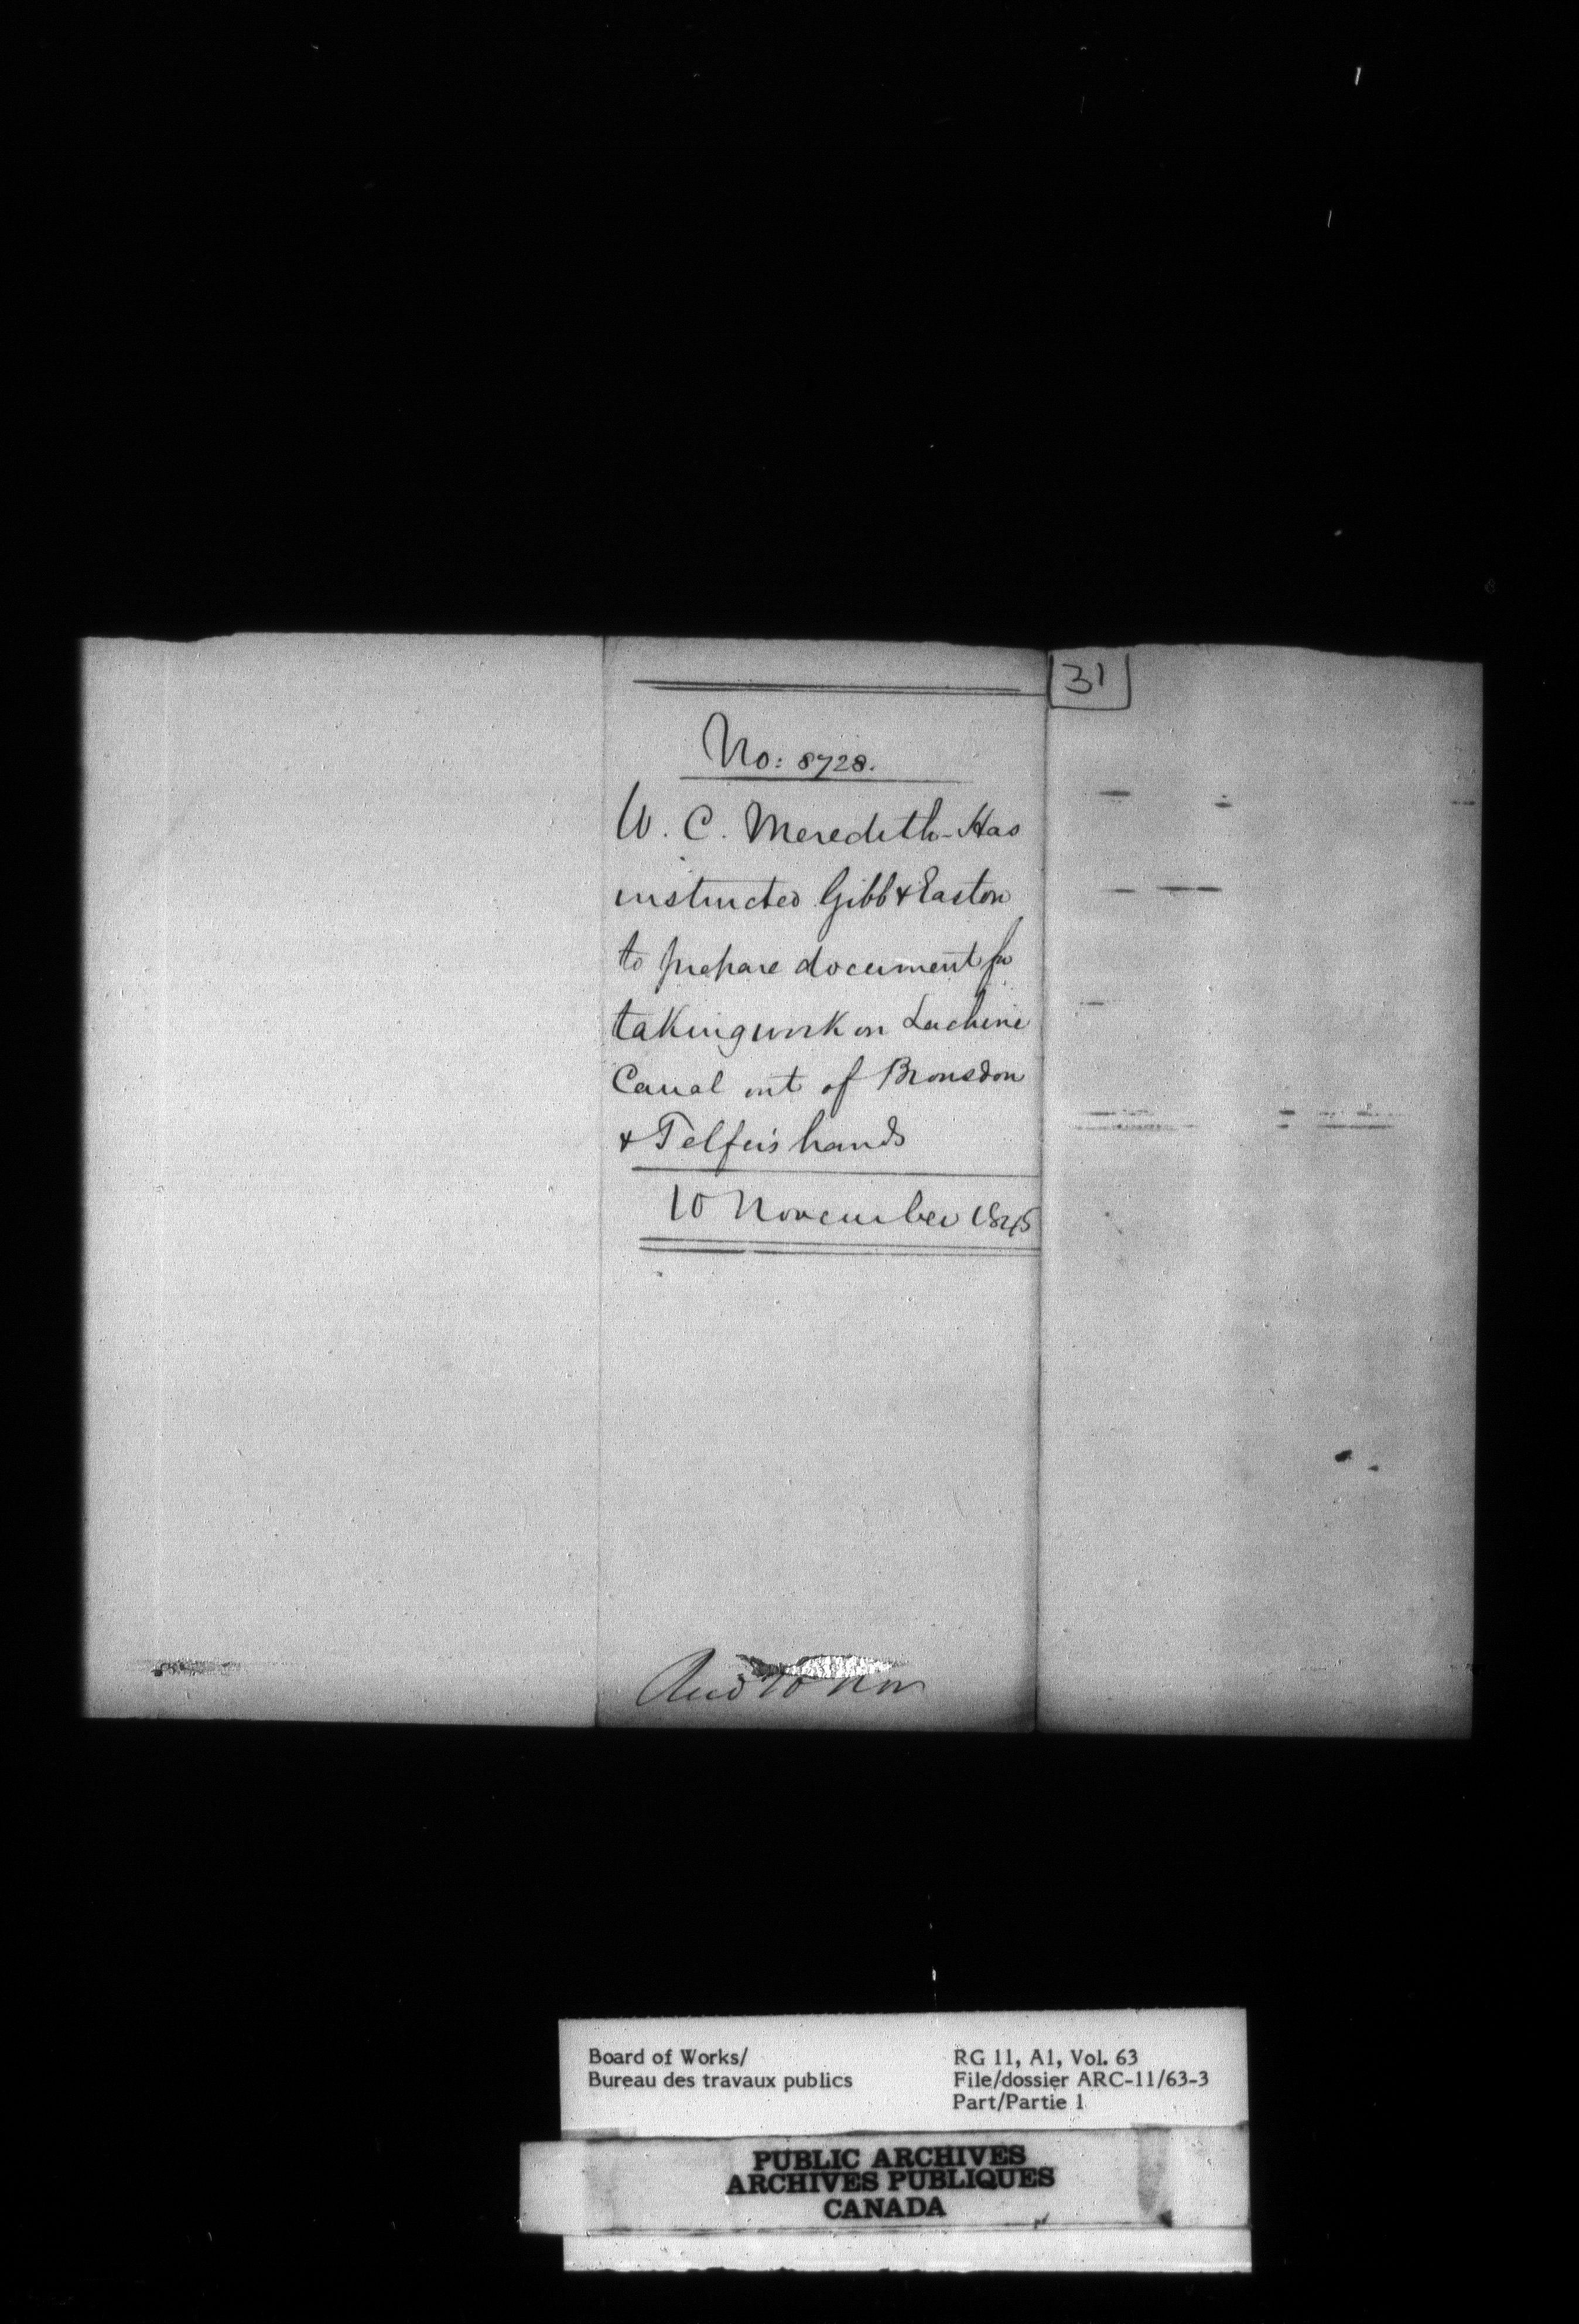 31
No: 8728.
W. C. Meredith - Has
instructed Gibb & Easton
to prepare document for
taking work on Lachine
Canal out of Bronsdon
& Telfer's hands
10 November 1845
Recd 10 Nov
Board of Works/
Bureau des travaux publics
RG 11, A1, Vol. 63
File/dossier ARC-11/63-3
Part/Partie 1
PUBLIC ARCHIVES
ARCHIVES PUBLIQUES
CANADA